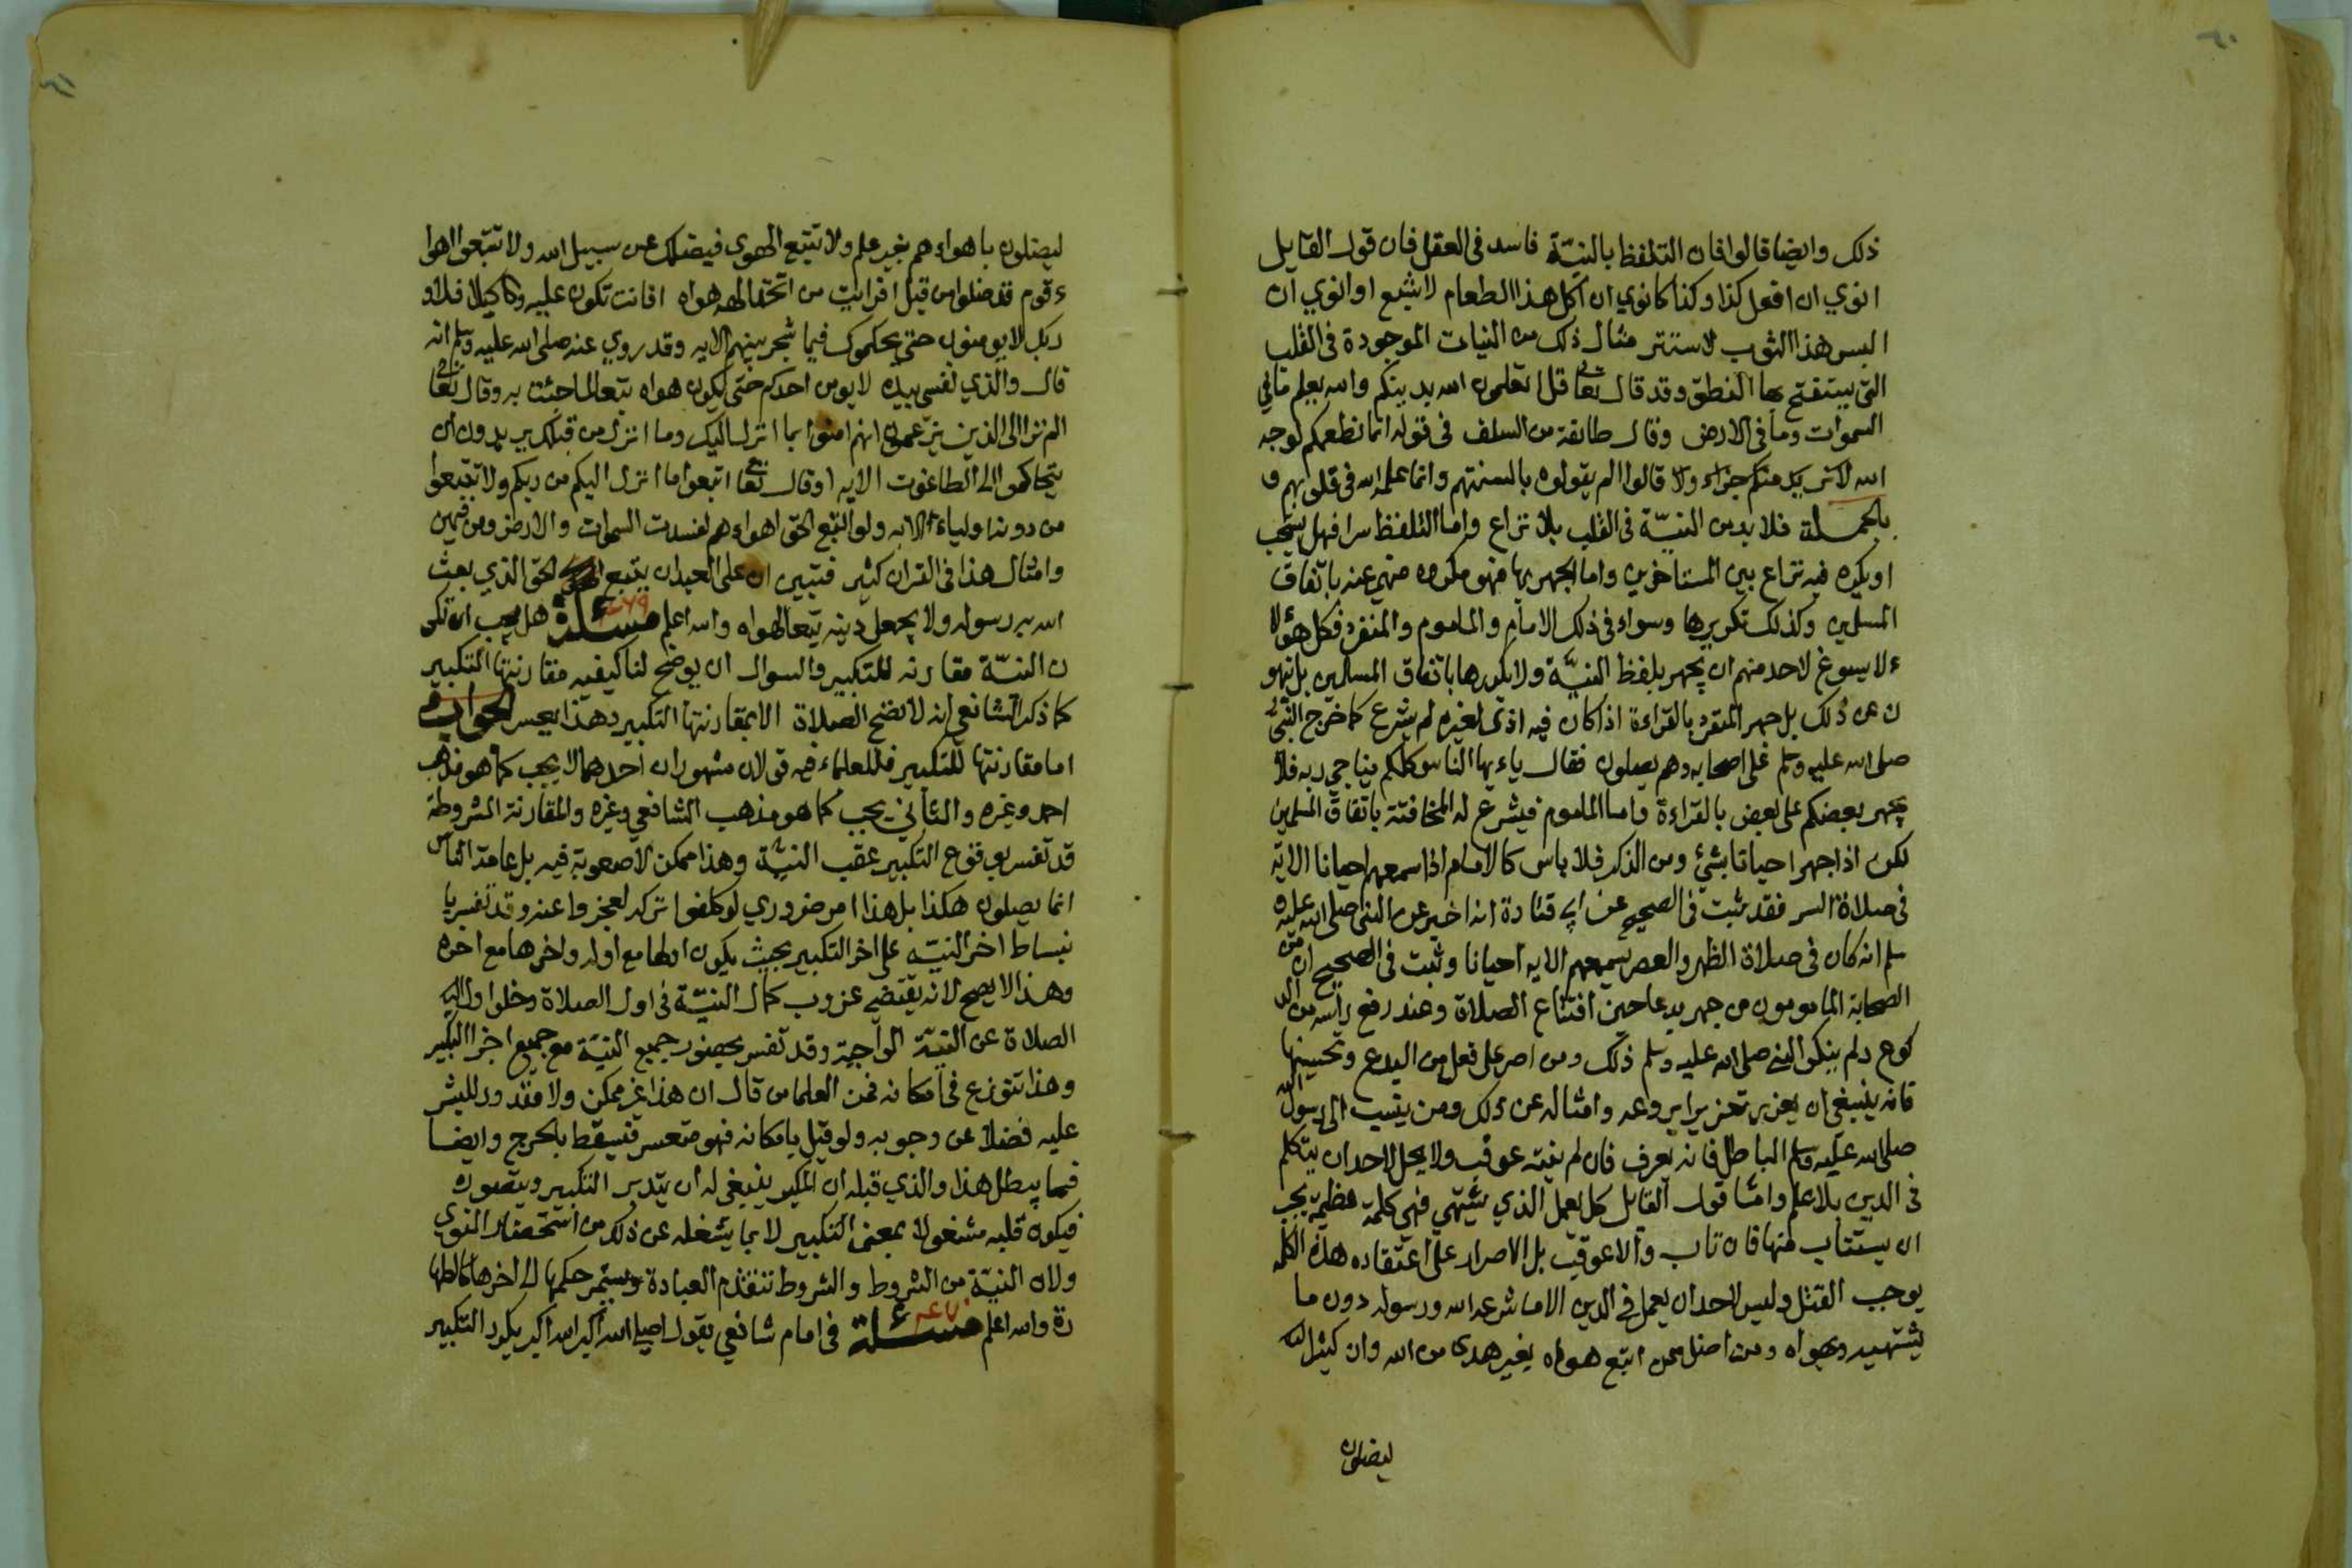 ٦٠
ذلك وايضا قالوا فان التلفظ بالنيّة فاسد في العقل فان قول القايل
انوي ان افعل كذا وكذا كانوي ان آكل هذا الطعام لاشبع او انوي ان
البس هذا الثوب لاستتر مثال ذلك من النيات الموجودة في القلب
التي يستقبح بها النطق وقد قال تعالى قل اتعلمون الله بدينكم والله يعلم ما في
السموات وما في الارض وقال طائفة من السلف في قوله انما نطعمكم لوجه
الله لا نريد منكم جزاء ولا قالوا لم يقولوه بالسنتهم وانما علمه الله في قلوبهم و
بالجملة فلا بد من النيّة في القلب بلا نزاع واما التلفظ سرا فهل يستحب
او يكره فيه نزاع بين المتاخرين واما الجهر بها فهو مكروه منهي عنه باتفاق
المسلمين وكذلك تكريرها وسواء في ذلك الامام والماموم والمنفرد فكل هؤلا
ء لا يسوغ لاحد منهم ان يجهر بلفظ النيّة ولا يكررها باتفاق المسلمين بل ينهو
ن عن ذلك بل جهر المنفرد بالقراءة اذا كان فيه اذى لغيره لم يشرع كما خرج النبي
صلى الله عليه وسلم على اصحابه وهم يصلون فقال ياءيها الناس كلكم يناجي ربه فلا
يجهر بعضكم على بعض بالقراءة واما الماموم فيشرع له المخافتة باتفاق المسلمين
لكن اذا جهر احيانا بشيء ومن الذكر فلا باس كالامام اذا اسمعهم احيانا الاية
في صلاة السر فقد ثبت في الصحيح عن ابي قتادة انه اخبر عن النبي صلى الله عليه و
سلم انه كان في صلاة الظهر والعصر يسمعهم الايه احيانا وثبت في الصحيح ان من
الصحابة المامومون من جهر بدعا حين افتتاح الصلاة وعند رفع رأسه من الر
كوع ولم ينكر النبي صلى الله عليه وسلم ذلك ومن اصر على فعل من البدع وتحسينها
فانه ينبغي ان يعزر تعزيرا يردعه وامثاله عن ذلك ومن ينسب الى رسول الله
صلى الله عليه وسلم الباطل فانه يعرف فان لم ينته عوقب ولا يحل لاحد ان يتكلم
في الدين بلا علم وامثا قول القايل كل يعمل الذي يشتهي فهي كلمة عظيمة يجب
ان يستتاب منها فان تاب والا عوقب بل الاصرار على اعتقاده هذه الكلمه
يوجب القتل وليس لاحد ان يعمل في الدين الا ما شرعه الله ورسوله دون ما
يشتهيه ويهواه ومن اضل ممن اتبع هواه بغير هدى من الله وان كثيرا
ليضلون
٦١
ليضلون باهواءهم بغير علم ولا تتبع الهوى فيضلك عن سبيل الله ولا تتبعوا اهوا
ء قوم قد ضلوا من قبل افرايت من اتخذ الهه هواه افانت تكون عليه وكيلا فلا و
ربك لا يومنون حتى يحكموك فيما شجر بينهم الايه وقد روي عنه صلى الله عليه وسلم انه
قال والذي نفسي بيده لا يومن احدكم حتى يكون هواه تبعا لما جئت به وقال تعالى
الم تر الى الذين يزعمون انهم امنوا بما انزل اليك وما انزل من قبلك يريدون ان
يتحاكموا الى الطاغوت الايه وقال تعالى اتبعوا ما انزل اليكم من ربكم ولا تتبعوا
من دونه اولياء الايه ولو اتبع الحق اهواءهم لفسدت السموات والارض ومن فيهن
وامثال هذا في القران كثير فتبين ان على العبد ان يتبع الحق الذي بعث
الله به رسوله ولا يجعل دينه تبعا لهواه والله اعلم مسئلة ٤٦٩ هل يجب ان تكو
ن النيّة مقارنه للتكبير والسوال ان يوضح لنا كيفيه مقارنتها التكبير
كما ذكر الشافعي انه لا تصح الصلاة الا بمقارنتها التكبير وهذا يعسر الجواب
اما مقارنتها للتكبير فللعلماء فيه قولان مشهوران احدهما لا يجب كما هو مذهب
احمد وغيره والثاني يجب كما هو مذهب الشافعي وغيره والمقارنة المشروطة
قد تفسر بوقوع التكبير عقب النيّة وهذا ممكن لا صعوبة فيه بل عامة الناس
انما يصلون هكذا بل هذا امر ضروري لو كلفوا تركه لعجزوا عنه وقد تفسر با
نبساط اخر النيّة على اخر التكبير بحيث يكون اولها مع اوله واخرها مع اخره
وهذا لا يصح لانه يقتضي عزوب كمال النيّة في اول الصلاة وخلو اول
الصلاة عن النيّة الواجبة وقد تفسر بحضور جميع النيّة مع جميع اجزا التكبير
وهذا تنوزع في امكانه فمن العلما من قال ان هذا غير ممكن ولا مقدور للبشر
عليه فضلا عن وجوبه ولو قيل بامكانه فهو متعسر فيسقط بالحرج وايضا
فما يبطل هذا والذي قبله ان المكبر ينبغي له ان يتدبر التكبير ويتصوره
فيكون قلبه مشغولا بمعنى التكبير لا بما يشغله عن ذلك من استحضار المنوي
ولان النيّة من الشروط والشروط تتقدم العبادة ويستمر حكمها الى اخرها كالطها
رة والله اعلم مسئلة ٤٧٠ في امام شافعي يقول اصلي الله اكبر الله اكبر يكرر التكبير